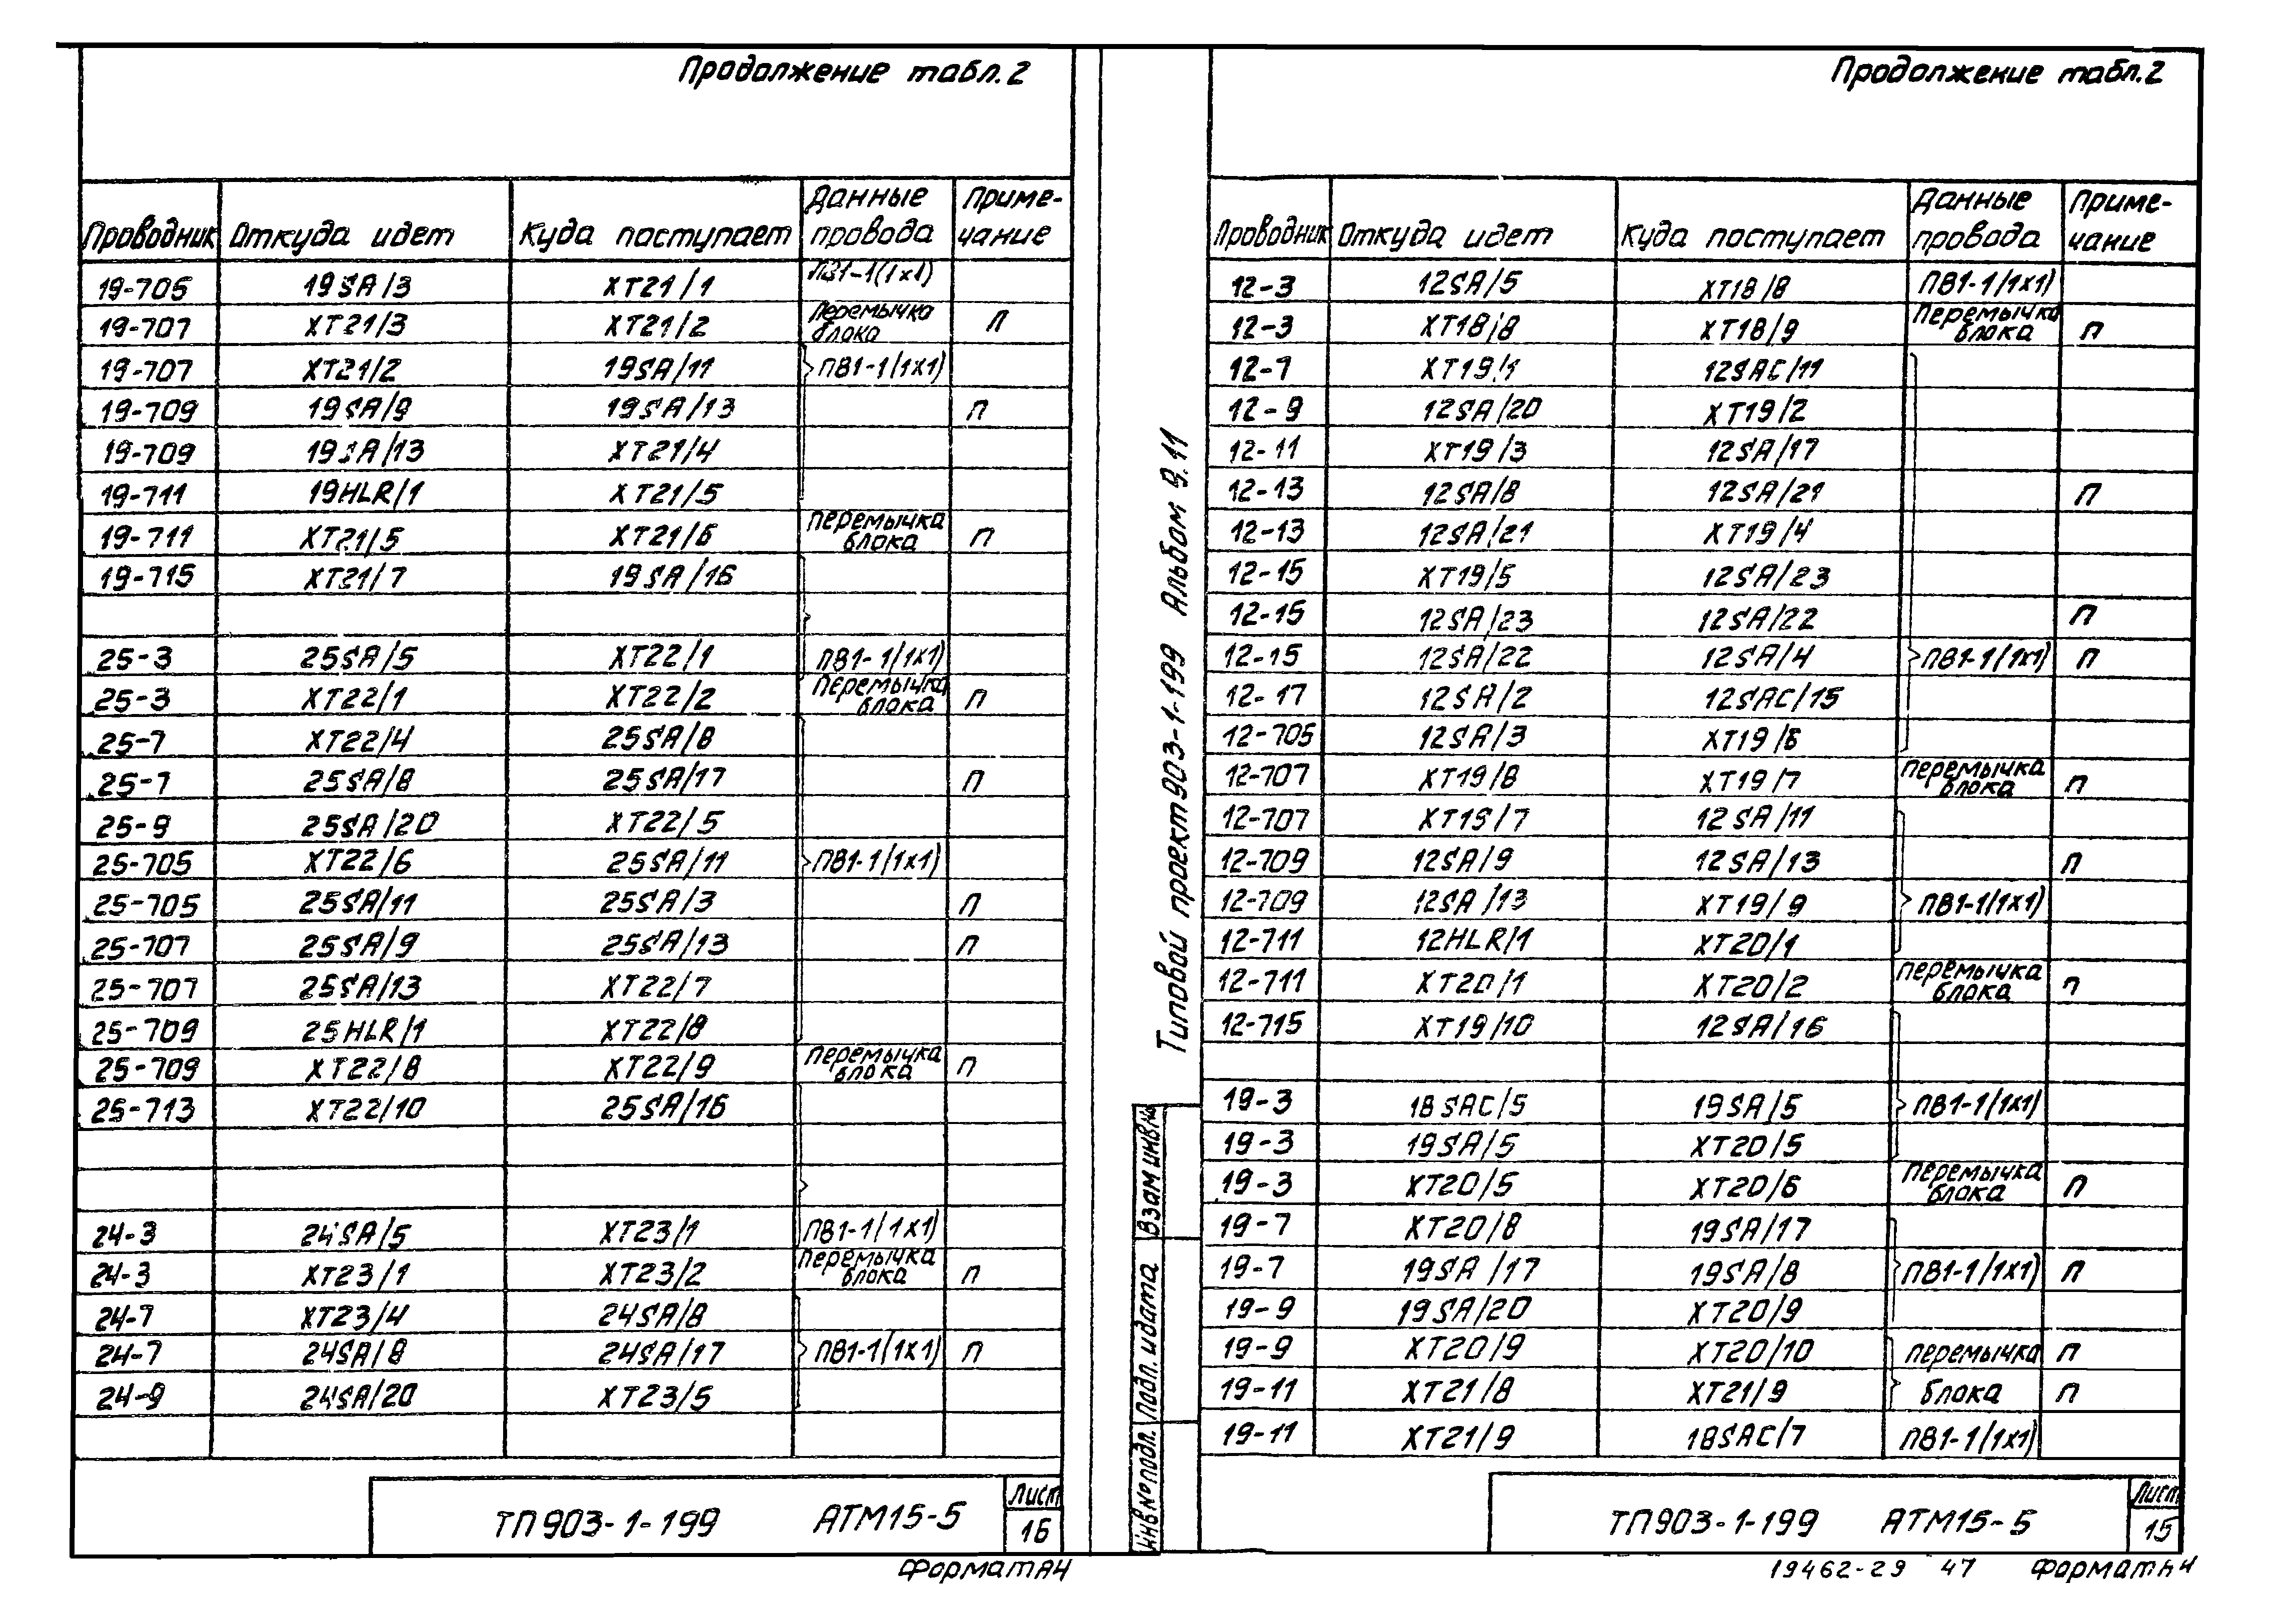 Продолжение табл.2
Проводник Откуда идет Куда поступает Данные провода Примечание
19-705 19SA/3 XT21/1 ПВ1-1(1х1)
19-707 XT21/3 XT21/2 Перемычка блока П
19-707 XT21/2 19SA/11 ПВ1-1/1х1)
19-709 19SA/9 19SA/13 П
19-709 19SA/13 XT21/4
19-711 19HLR/1 XT21/5
19-711 XT21/5 XT21/6 перемычка блока П
19-715 XT21/7 19SA/16
25-3 25SA/5 XT22/1 ПВ1-1/1х1)
25-3 XT22/1 XT22/2 Перемычка блока П
25-7 XT22/4 25SA/8
25-7 25SA/8 25SA/17 П
25-9 25SA/20 XT22/5
25-705 XT22/6 25SA/11 ПВ1-1/1х1)
25-705 25SA/11 25SA/3 П
25-707 25SA/9 25SA/13 П
25-707 25SA/13 XT22/7
25-709 25HLR/1 XT22/8
25-709 XT22/8 XT22/9 перемычка блока П
25-713 XT22/10 25SA/16
24-3 24SA/5 XT23/1 ПВ1-1/1х1)
24-3 XT23/1 XT23/2 Перемычка блока П
24-7 XT23/4 24SA/8
24-7 24SA/8 24SA/17 ПВ1-1/1х1) П
24-9 24SA/20 XT23/5
ТП903-1-199 АТМ15-5 Лист 16
Формат А4
Типовой проект 903-1-199 Альбом 9.11
Взам инв№
Подп. и дата
Инв№подл.
Продолжение табл.2
Проводник Откуда идет Куда поступает Данные провода Примечание
12-3 12SA/5 XT18/8 ПВ1-1/1х1)
12-3 XT18/8 XT18/9 Перемычка блока П
12-7 XT19/1 12SAC/11
12-9 12SA/20 XT19/2
12-11 XT19/3 12SA/17
12-13 12SA/8 12SA/21 П
12-13 12SA/21 XT19/4
12-15 XT19/5 12SA/23
12-15 12SA/23 12SA/22 П
12-15 12SA/22 12SA/4 ПВ1-1/1х1) П
12-17 12SA/2 12SAC/15
12-705 12SA/3 XT19/6
12-707 XT19/8 XT19/7 перемычка блока П
12-707 XT19/7 12SA/11
12-709 12SA/9 12SA/13 П
12-709 12SA/13 XT19/9 ПВ1-1/1х1)
12-711 12HLR/1 XT20/1
12-711 XT20/1 XT20/2 перемычка блока П
12-715 XT19/10 12SA/16
19-3 18SAC/5 19SA/5 ПВ1-1/1х1)
19-3 19SA/5 XT20/5
19-3 XT20/5 XT20/6 перемычка блока П
19-7 XT20/8 19SA/17
19-7 19SA/17 19SA/8 ПВ1-1/1х1) П
19-9 19SA/20 XT20/9
19-9 XT20/9 XT20/10 перемычка П
19-11 XT21/8 XT21/9 блока П
19-11 XT21/9 18SAC/7 ПВ1-1/1х1)
ТП903-1-199 АТМ15-5 Лист 15
19462-29 47 Формат А4